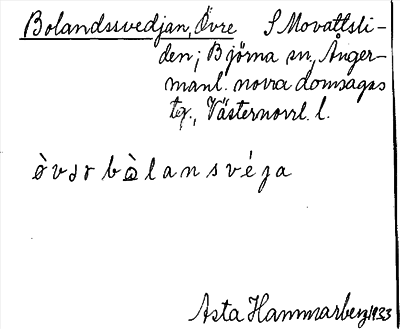 Bolandssvedjan, Övre S Movattsli-
den; Björna sn, Ånger-
manl. norra domsagas
tg., Västernorrl. l.
òvər bòlansvéja
Asta Hammarberg 1933